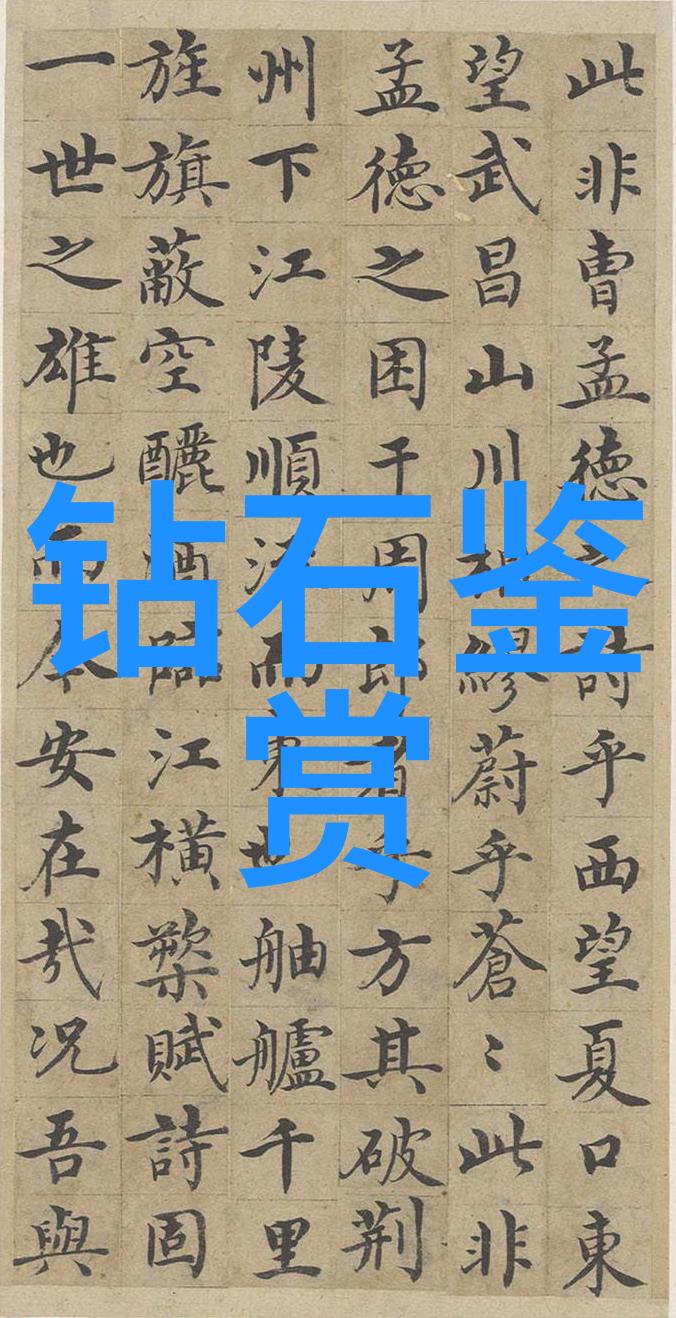 此非曹孟德之詩乎西望夏口東
望武昌山川相繆蔚乎蒼〻此非
孟德之困于周郎者乎方其破荊
州下江陵順流而東也舳艫千里
旌旗蔽空釃酒臨江橫槊賦詩固
一世之雄也而今安在哉况吾與
钻石鉴
赏